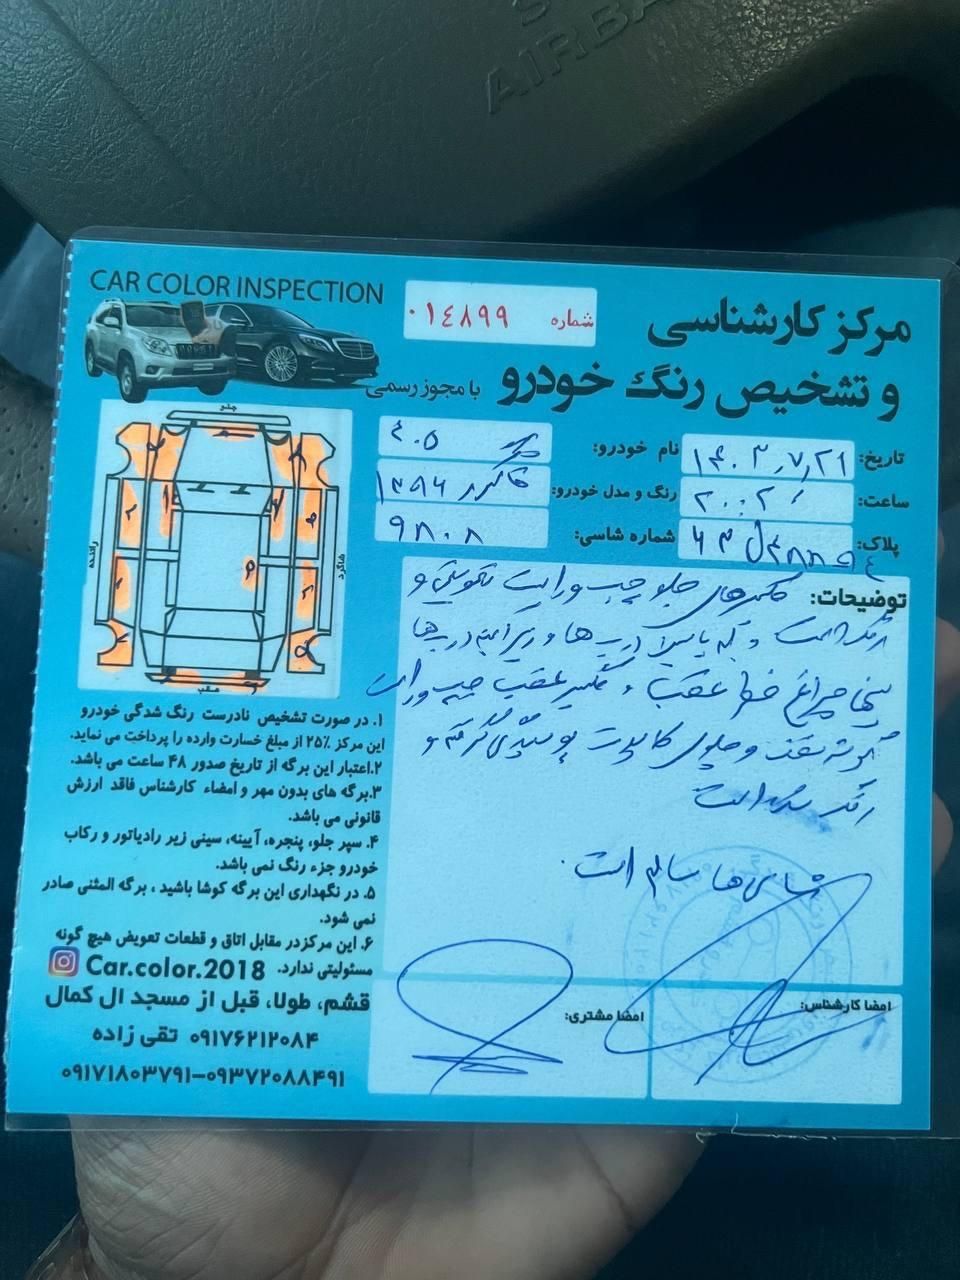 AIRBA
CAR COLOR INSPECTION
شماره ۰۱۴۸۹۹
مرکز کارشناسی
و تشخیص رنگ خودرو با مجوز رسمی
تاریخ: ۱۴۰۳,۷,۲۹
نام خودرو: ۴۰۵
ساعت: ۲۰:۲۰
رنگ و مدل خودرو: ۱۳۹۶
پلاک:
شماره شاسی: ۹۸۰۸
جلو
راننده
شاگرد
عقب
توضیحات: گلگیرهای جلو چپ و راست تعویض و
رنگ است و لبه پایین درب ها و زیر آینه درب ها
چراغ خطر عقب و گلگیر عقب چپ و راست
گوشه سقف و جلوی کاپوت پوسیدگی گرفته و
رنگ شده است
شاسی ها سالم است.
۱. در صورت تشخیص نادرست رنگ شدگی خودرو
این مرکز ۲۵٪ از مبلغ خسارت وارده را پرداخت می نماید.
۲.اعتبار این برگه از تاریخ صدور ۴۸ ساعت می باشد.
۳.برگه های بدون مهر و امضاء کارشناس فاقد ارزش
قانونی می باشد.
۴. سپر جلو، پنجره، آیینه، سینی زیر رادیاتور و رکاب
خودرو جزء رنگ نمی باشد.
۵. در نگهداری این برگه کوشا باشید ، برگه المثنی صادر
نمی شود.
۶. این مرکزدر مقابل اتاق و قطعات تعویض هیچ گونه
مسئولیتی ندارد.
Car.color.2018
قشم، طولا، قبل از مسجد ال کمال
۰۹۱۷۶۲۱۲۰۸۴ تقی زاده
۰۹۱۷۱۸۰۳۷۹۱-۰۹۳۷۲۰۸۸۴۹۱
امضا کارشناس:
امضا مشتری: